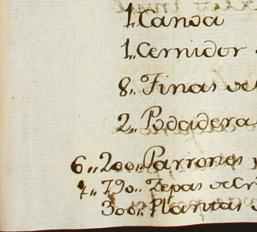 1,, Canoa
1,, Cernidor
8,, Tinas de
2,, Podadera
6,, 200,, Parrones y
4,, 790,, Zepas de
300,, Plantas